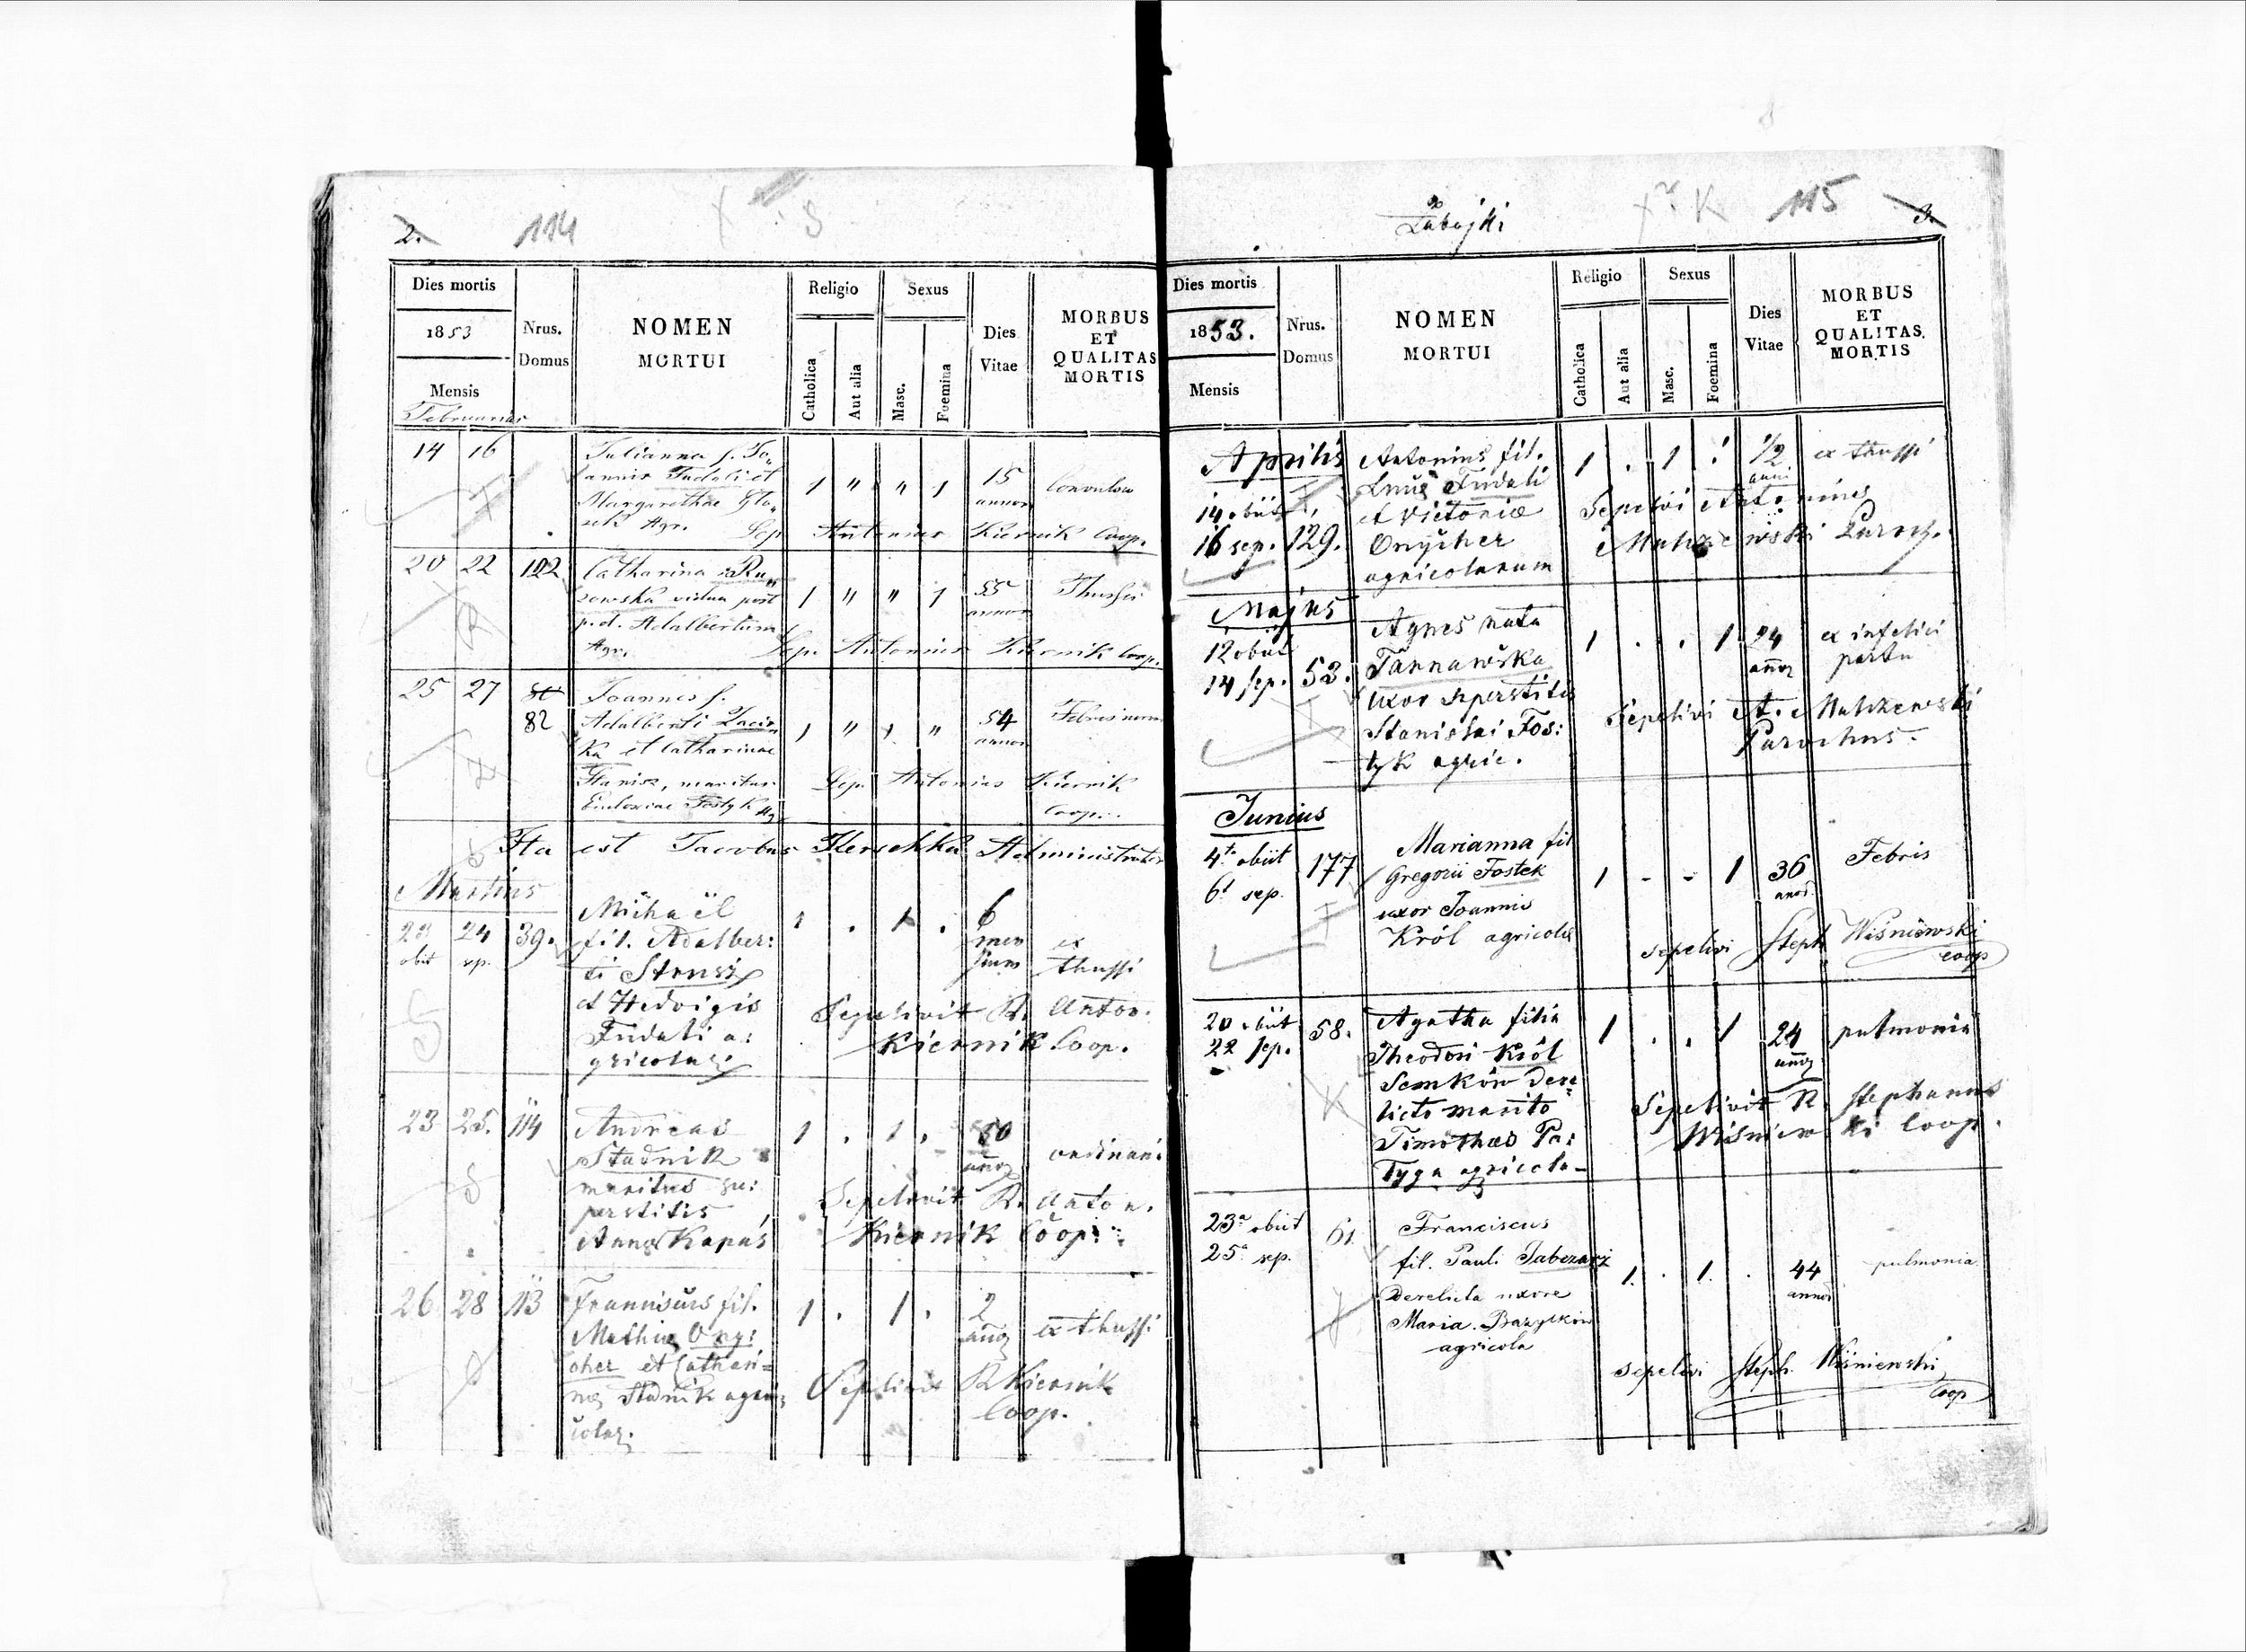 2. 114
Dies mortis
1853
Mensis
Februarius
Nrus.
Domus
NOMEN
MORTUI
Religio
Catholica
Aut alia
Sexus
Masc.
Foemina
Dies
Vitae
MORBUS
ET
QUALITAS
MORTIS
14 16 Julianna f. Jo„
annis Fudali et
Margarethae Gło„
sek Agr.
1 " " 1 15
annor
Convulsio
Sep. Antonius Kiernik Coop.
20 22 122 Catharina Ru„
zowska vidua post
p.d. Adalbertum
Agr.
1 " " 1 55
annor
Thussis
Sep. Antonius Kiernik Coop.
25 27 82 Joannes f.
Adalberti
ka et Catharinae
Stanisz, maritus
Fostyk
1 " 1 " 54
annor
Febris
Sep. Antonius Kiernik
Coop.
Ita est Jacobus Administrator
Martius
23 24 39. Michaël
obiit sep. fil. Adalber:
ti
et Hedvigis
Fudali a:
gricolar
1 . 1 . 6
men
sium
ex
thussi
Sepelivit R. Anton.
Kiernik Coop.
23 25. 114 Andreas
Stadnik
maritus su:
perstitis
Annae Kapuś
1 . 1 . 50
annor
ordinari
Sepelivit R. Anton.
Kiernik Coop.
26 28 113 Franciscus fil.
Mathiae Ony:
cher et Cathari=
nae Stadnik agri
colar.
1 . 1 . 2
annor
ex thussi
Sepelivit R Kiernik
Coop.
Żabajki
115 3.
Dies mortis
1853.
Mensis
Nrus.
Domus
NOMEN
MORTUI
Religio
Catholica
Aut alia
Sexus
Masc.
Foemina
Dies
Vitae
MORBUS
ET
QUALITAS
MORTIS
Aprilis
14 obiit
16 sep. 129.
Antonius fil.
Fudali
et Victoriae
Onycher
agricolarum
1 . 1 . 1/2
anni
ex thussi
Sepelivi Antoninus
Paroch.
Majus
12 obiit
14 sep. 53.
Agnes nata
Tarnawska
uxor superstitis
Stanislai Fos:
tyk agric.
1 . . 1 24
annor
ex infelici
partu
Sepelivi A.
Parochus.
Junius
4ta obiit 177
6t sep.
Marianna fil
Gregorii Fostek
uxor Joannis
Król agricola
1 - - 1 36
anor.
Febris
sepelivi Steph Wiśniewski
coop
20 obiit 58.
22 sep.
Agatha filia
Theodori Król
Semków Dere
licto marito
Timotheo Pa:
tyga agricola
1 . . 1 24
annor
pulmonia
Sepelivit R. Stephanus
Wiśniewski Coop.
23a obiit 61
25a sep.
Franciscus
fil. Pauli
Derelicta uxore
Maria
agricola
1. . 1. . 44
annor
pulmonia.
sepelivi Steph. Wiśniewski
Coop